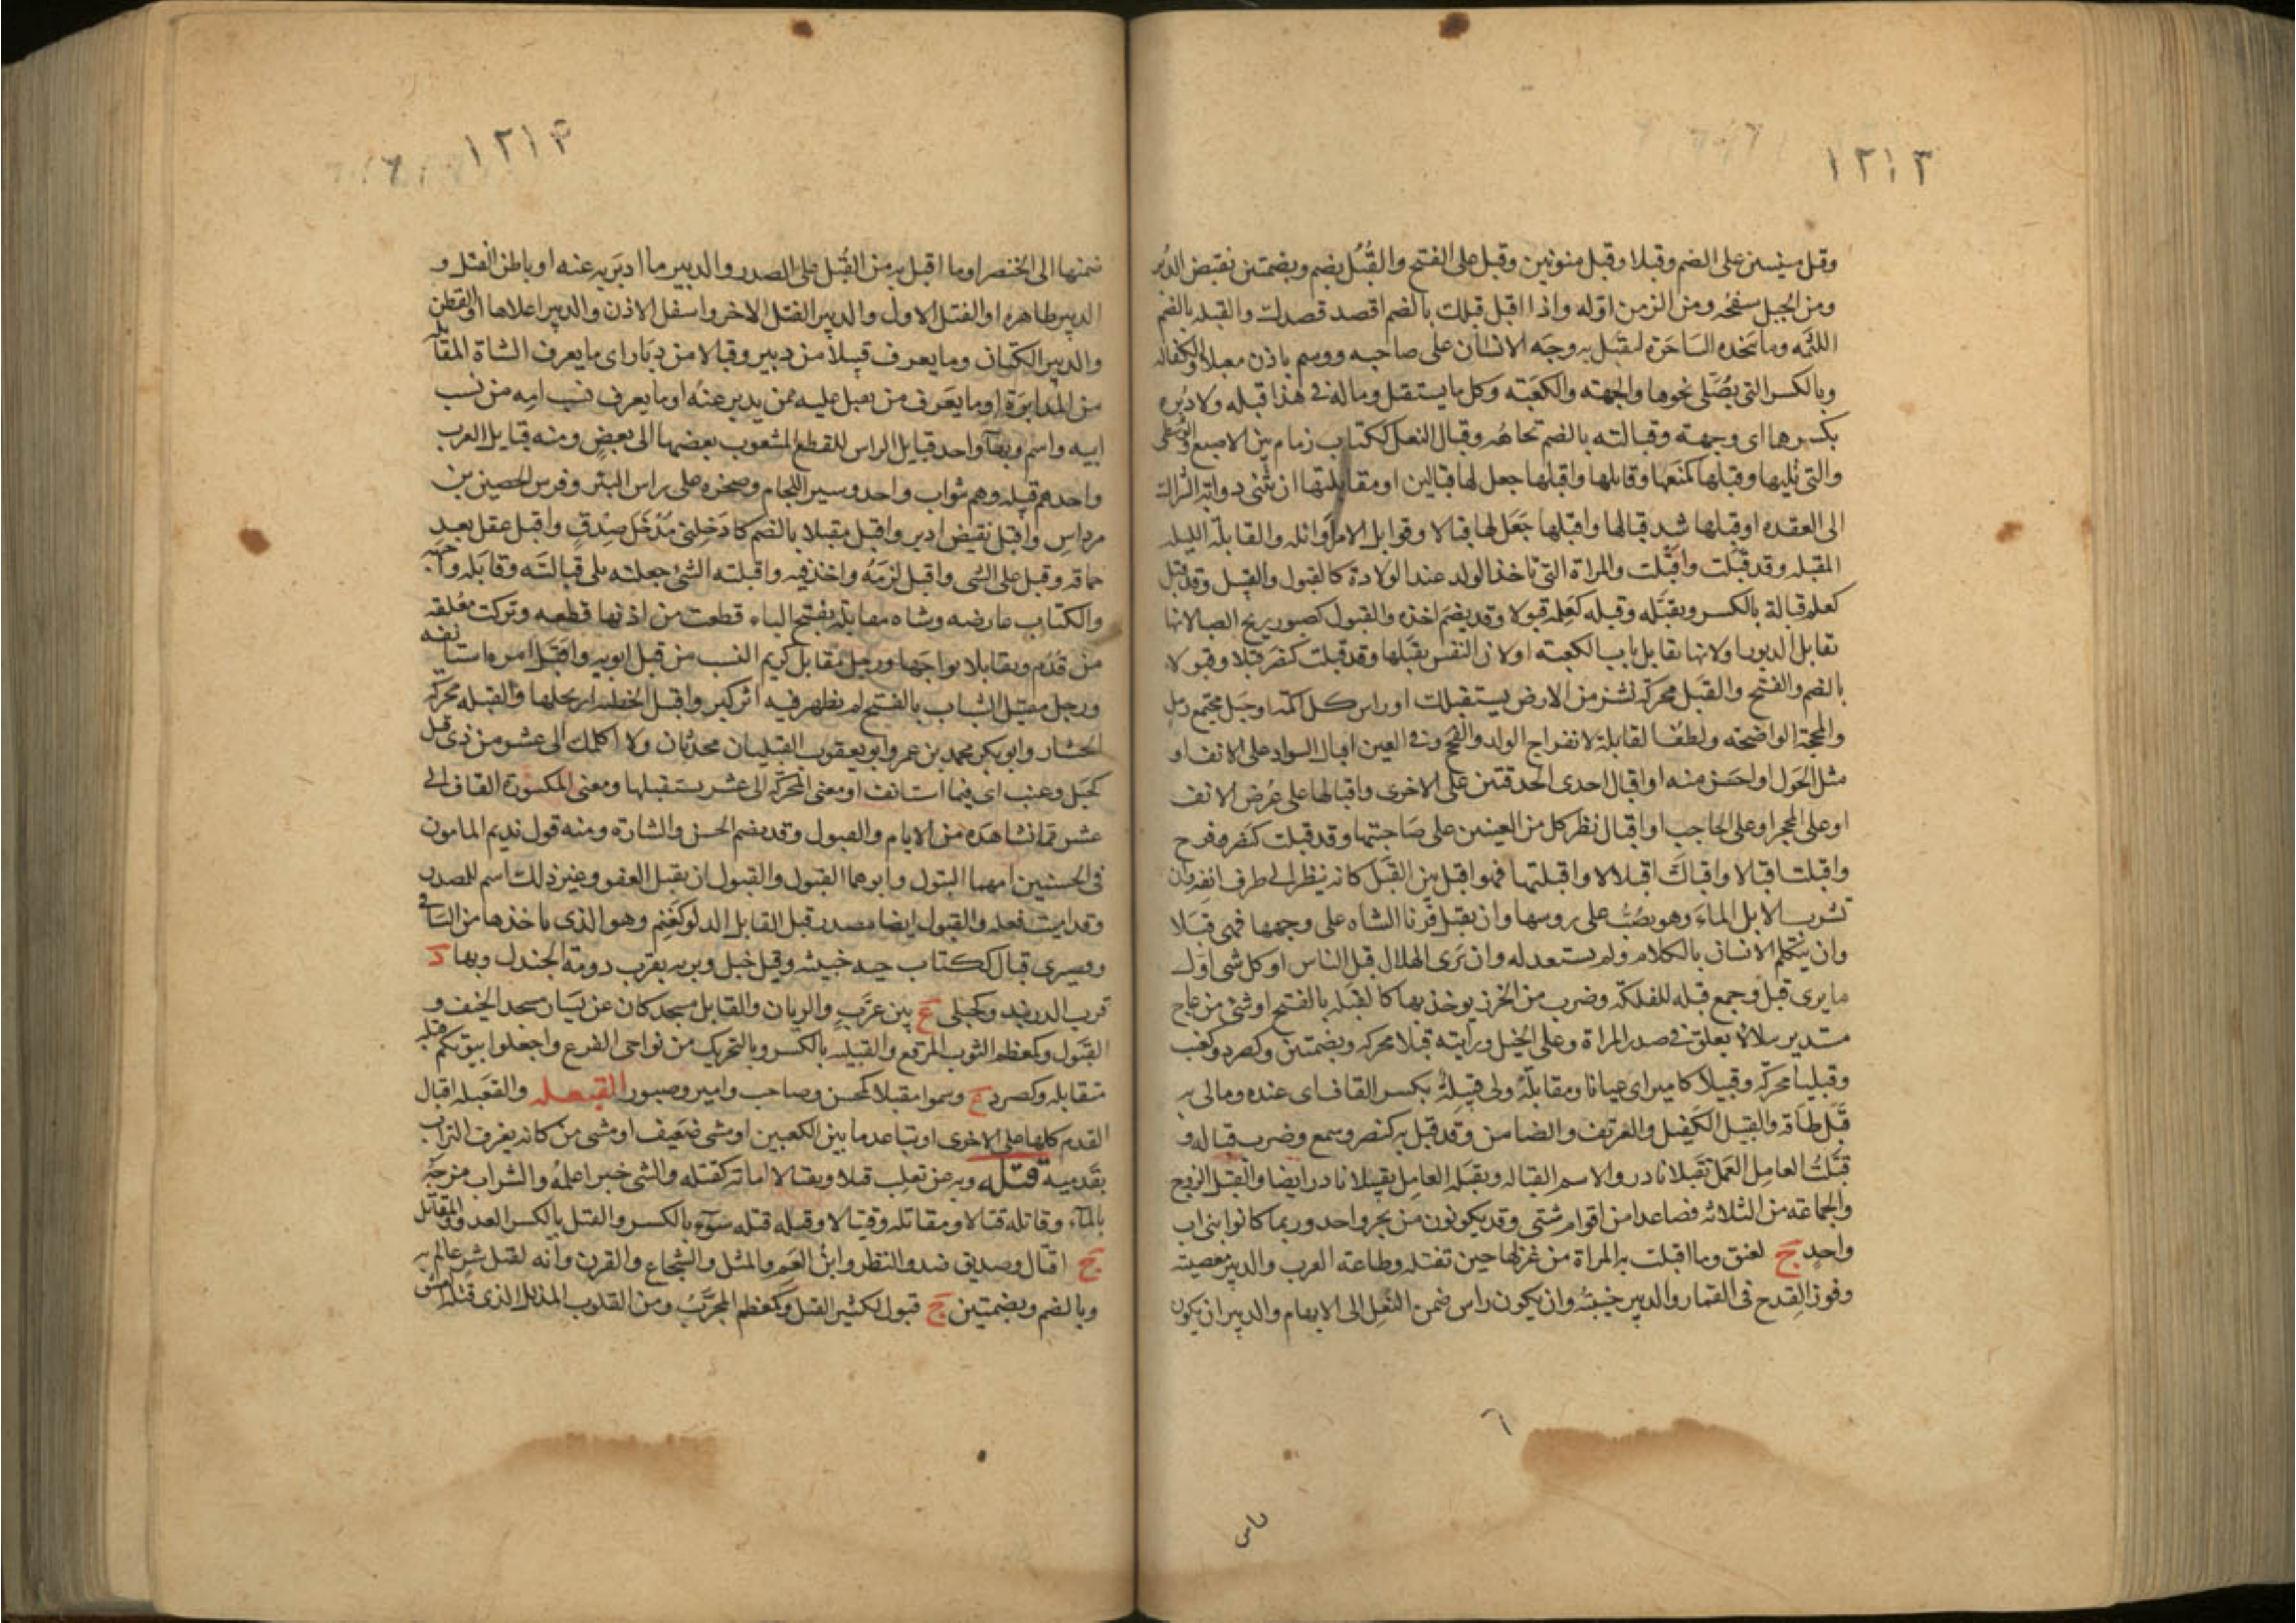 ١٢١٣
وقبل مبنيتين على الضم وقبلا وقبل منونتين وقبل على الفتح والقُبُل بضم وبضمتين نقيض الدبر
ومن الجبل سفحه ومن الزمن اوله واذا اقبل قبلك بالضم اقصد قصدك والقبله بالضم
اللثمه وما تتخذه الساحرة لتقبل به وجه الانسان على صاحبه ووسم باذن مقبلا والكفاله
وبالكسر التى يُصَلى نحوها والجهته والكعبَته وكل ما يستقبل وماله فى هذا قبله ولا دبره
بكسرهما اى وجهة وقبالته بالضم تجاهُه وقبال النعل ككتاب زمام بين الاصبع الوسطى
والتى تليها وقبلها كمنعها وقابلها واقبلها جعل لها قبالين او مقابلتها ان تثنى دوابة الشراك
الى العقده او قبلها شد قبالها واقبلها جَعَل لها قبالا وقوابل الامر اوائله والقابلة الليله
المقبله وقد قبلت واقبلت والمراة التى تاخذ الولد عند الولادة كالقبول والقبيل وقد قبلت
كعلم قبالة بالكسر وتقبَّله وقبله كعَلِمه قبولا وقد يضم اخذه والقبول كصبور ريح الصبا لانها
تقابل الدبور او لانها تقابل باب الكعبته او لان النفس تقبَلها وقد قبلت كنصَر قبلا وقبولا
بالضم والفتح والقبَل محركة نشز من الارض يستقبلك او راس كل اكمة او جبل مجتمع رمل
والمحجة الواضحته ولطف القابلة لاخراج الولد والفحج وفى العين اقبال السواد على الانف او
مثل الحَوَل او احسَن منه او اقبال احدى الحدقتين على الاخرى واقبالها على عُرض الانف
او على المحجر او على الحاجب او اقبال نظر كل من العينين على صَاحبتها وقد قبلت كنصر وفرح
واقبلت اقبالا واقبالت اقبلالا واقبلتها فهو اقبل بين القَبَل كانه ينظر الى طرف انفه وان
تشرب الابل الماءَ وهو يصُبّ على روسها وان يقبل قرنا الشاه على وجهها فهى قبَلا
وان يتكلم الانسان بالكلام ولم يستعد له وان ترى الهلال قبل الناس او كل شى اول
ما يرى قبل وجمع قبله للفلكة وضرب من الخرز يوخذ بها كالقبله بالفتح او شئ من عاج
مستدير يتلالا يعلق فى صدر المراة وعلى الخيل ورايته قبلا محركه وبضمتين وكصرد وكعنب
وقبليا محركه وقبيلا كامير اى عيانا ومقابلة ولى قِبَلَه بكسر القاف اى عنده ومالى به
قِبَل طاقة والقبيل الكفيل والعريف والضامن وقد قبل به كنصر وسمع وضرب قباله و
قبَّلتُ العامل العَمل تقبلا نادر والاسم القباله وتقبله العامل تقبيلا نادر ايضا والقبيل الزوج
والجماعته من الثلاثه فصاعدا من اقوام شتى وقد يكونون من نجر واحد وربما كانوا بنى اب
واحد ج كعنق وما اقبلت به المراة من غزلها حين تفتله وطاعته العرب والدبير معصيته
وفوز القِدح فى القمار والدبير خيبَتُه وان يكون راس ضمن النعل الى الابهام والدبير ان يكون
٦
ناس
١٢١٤
ضمنها الى الخنصر او ما اقبل به من الفَتل على الصدر والدبير ما ادبَر به عنه او باطن الفتل و
الدبير ظاهره او الفتل الاول والدبير الفتل الاخر واسفل الاذن والدبير اعلاها او القطن
والدبير الكتان وما يعرف قبيلا من دبير وقبالا من دبَار اى ما يعرف الشاة المقابلة
من المدابَرَة او ما يعَرف من يقبل عليه ممن يدبر عنهُ او ما يعرف نسب امه من نسب
ابيه واسم وبهاء واحد قبايل الراس للقطع المشعوب بعضها الى بعضٍ ومنه قبايل العرب
واحدهم قبيله وهم بنو اب واحد وسير اللجام وصخره على راس البئر وفرس الحصين بن
مرداس واقبل نقيض ادبر واقبل مقبلا بالضم كادخِلنى مُدْخَل صِدْقٍ واقبل عقل بعد
حماقه وقبل على الشى واقبل لزَمَهُ واخذ فيه واقبلته الشئ جعلته على قبالتَه وقابَله واجهه
والكتاب عارضه وشاه مقابلة بفتح الباء قطعت من اذنها قطعه وتركت معُلقه
من قُدُم وتقابلا تواجها ورجل مُقابل كريم النسب من قبل ابويه واقتَبَل امره استانفه
ورجل مقتبل الشباب بالفتح لم يظهر فيه اثر كبر واقبل الخطبه ارتجلها والقبله محركة
الخشار وابو بكر محمد بن عمر وابو يعقوب القبليان محدثان ولا اكلمك الى عشر من ذى قبل
كجَبَل وعنب اى فيما استانف او معنى المحركة الى عشر يستقبلها ومعنى المكسورة القاف الى
عشر مما تشاهَده من الايام والقبول وقد يضم الحسن والشارة ومنه قول نديم المامون
فى الحسنيين امهما البتول وابوهما القبول والقبول ان يقبل العفو وغير ذلك اسم للمصدر
وقد اميت فعله والقبول ايضا مصدر قبل القابل الدلو كغَنِم وهو الذى ياخذها من الساقى
وقصيرى قبال ككتاب حيه خبيثه وقبل جبل وبريه بقرب دومة الجندل وبها د
قرب الدربند وكحبلى ع بين عزَّب والريان والقابل مسجد كان عن يسَار مسجد الخيف و
القبول وكمعظم الثوب المرقع والقبليه بالكسر وبالتحريك من نواحى الفرع واجعلوا بيوتكم قبله
متقابله وكصرد ع وسموا مقبلا كمحسن وصاحب وامير وصبور القبعله والقعبَله اقبال
القدم كلها على الاخرى او تباعد ما بين الكعبين او مشى ضعيف او مشى من كانه يغرف التراب
بقَدميه قتله وبه عن ثعلب قتلا وتقتالا اماته كقتله والشى خبرا عِلمُه والشراب مزجَهُ
بالماء وقاتله قتالا ومقاتله وقيتالا وقتله قتله سَوْءٍ بالكسر والقتل بالكسر العدو والمقاتل
ج اقتال وصديق ضد والنظير وابنُ العَم والمثل والشجاع والقرن وانه لقتل شر عالم به
وبالضم وبضمتين ج قتول لكثير القتل وكمعظم المجرَّبُ ومن القلوب المذلل الذى قتله العشق